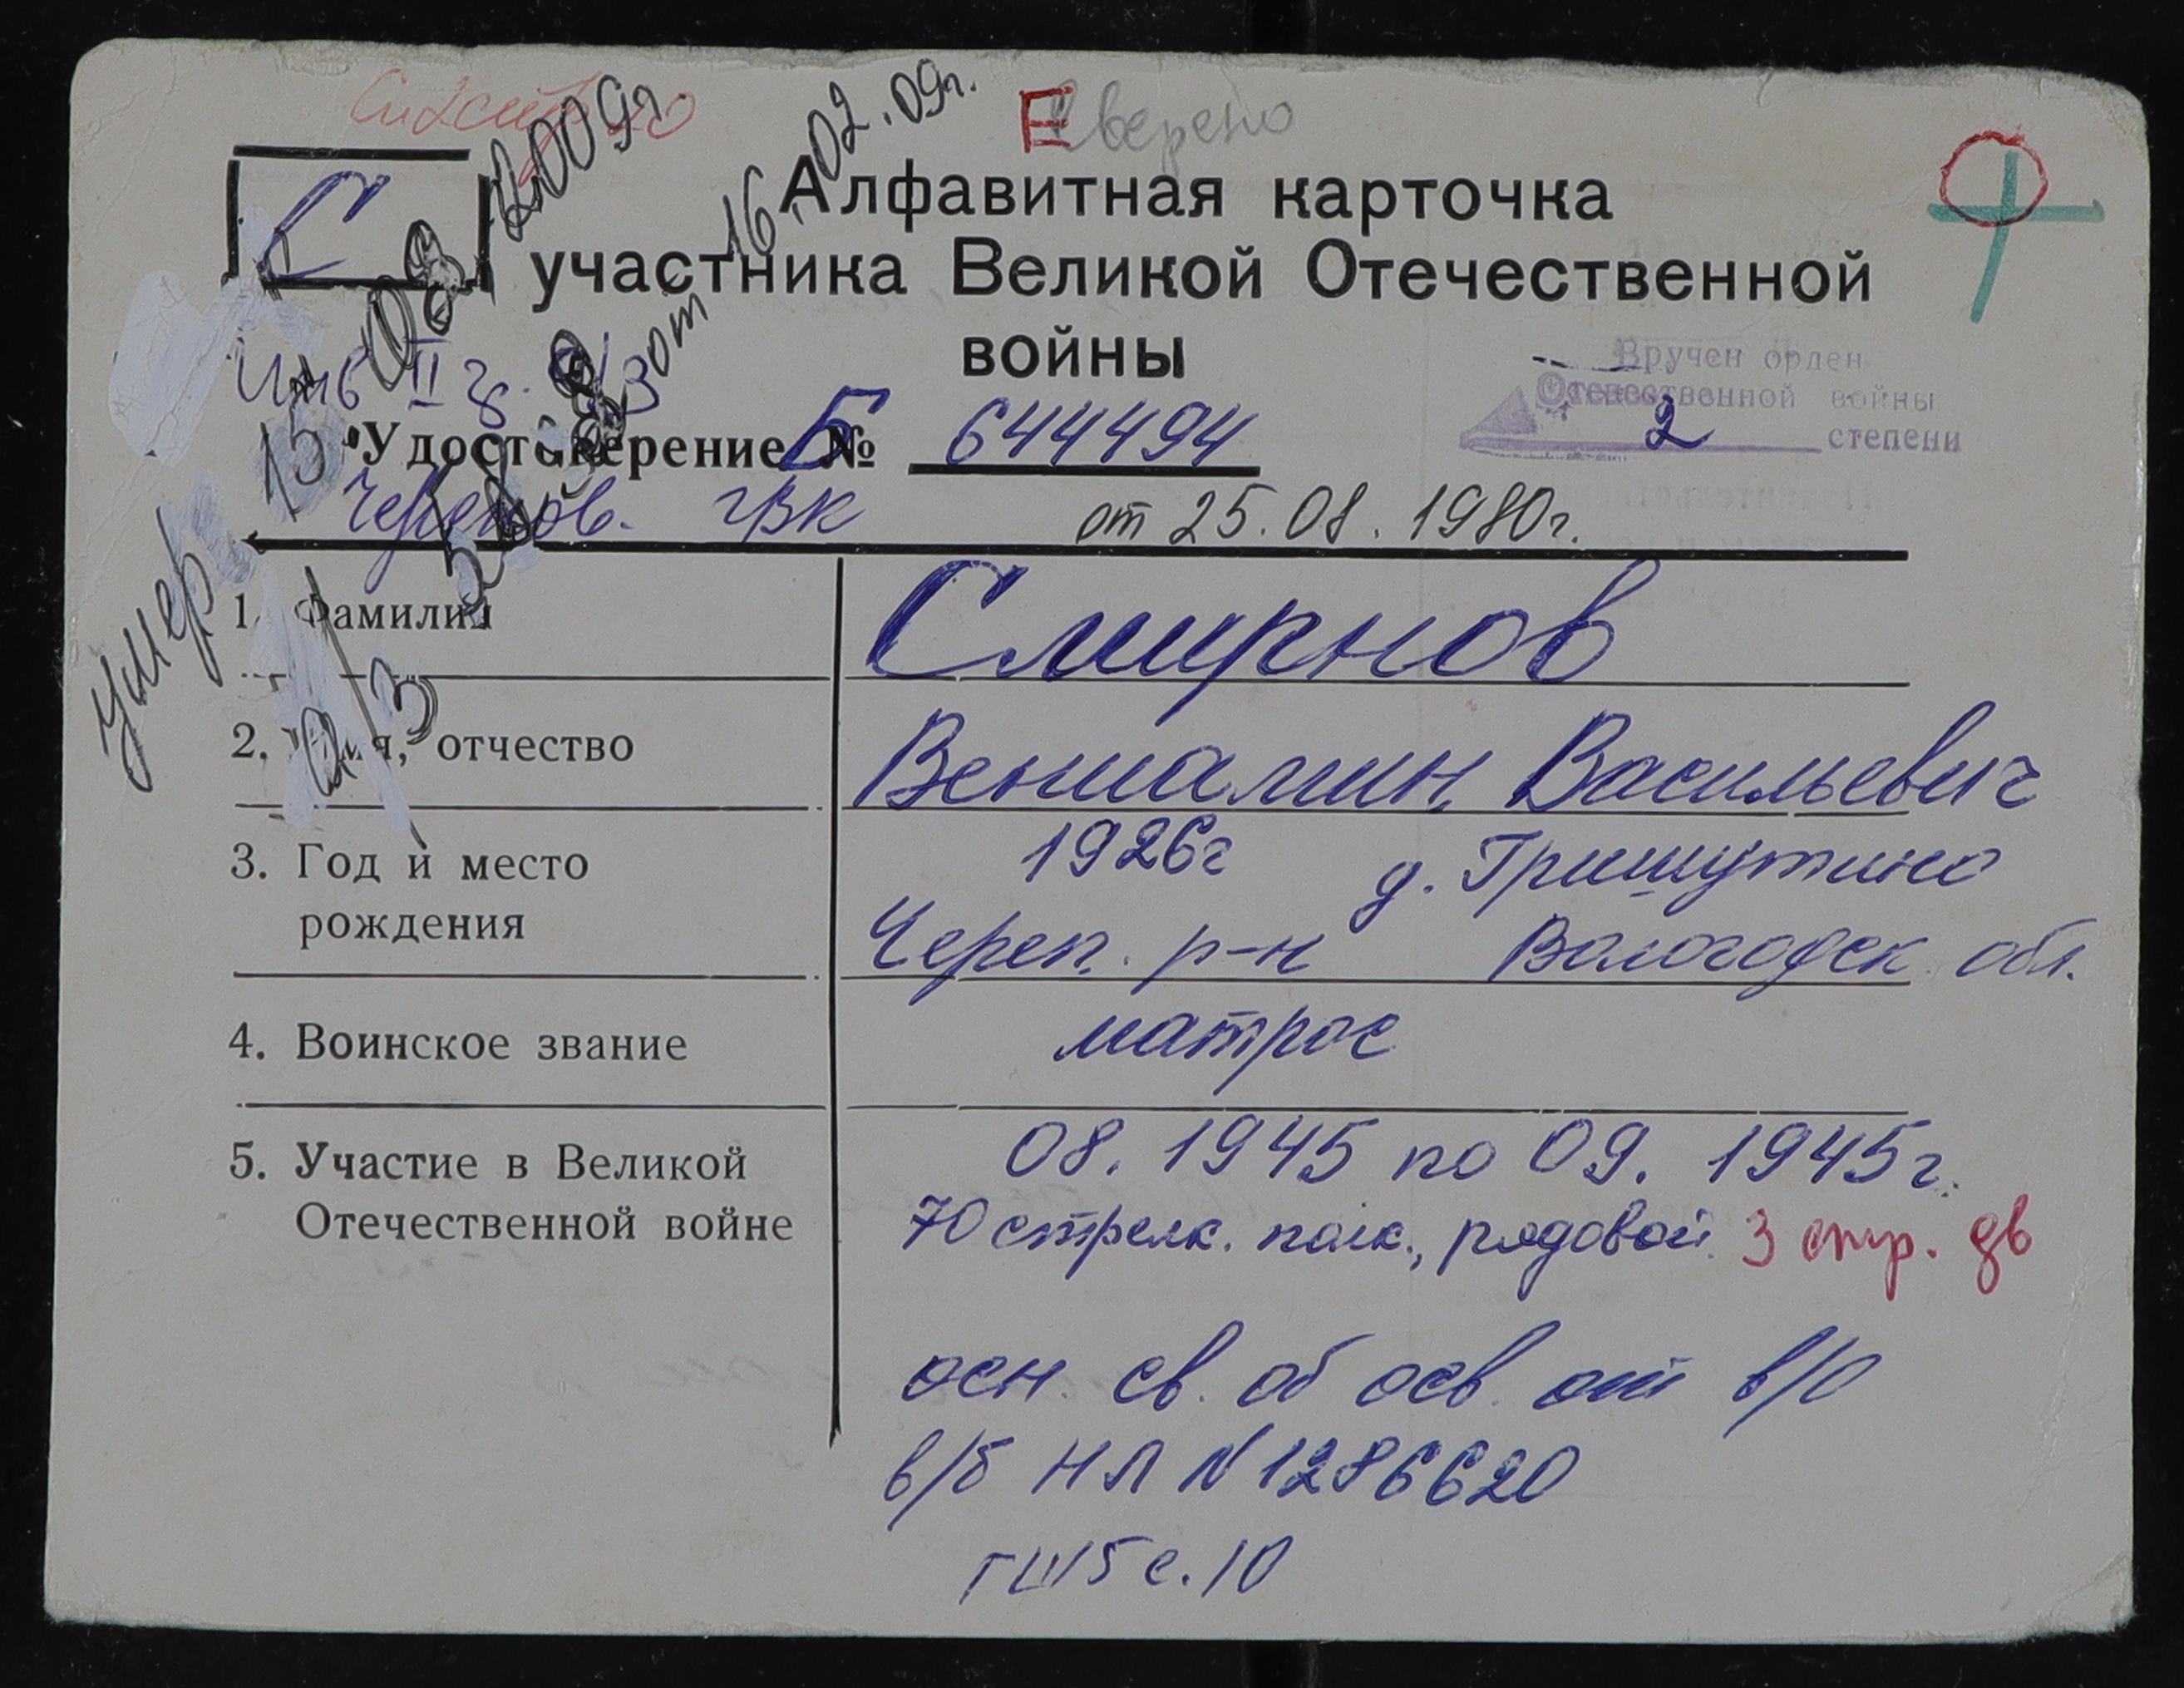 Е Сверено
С
Алфавитная карточка
участника Великой Отечественной
войны
Вручен орден
Отечественной войны
2 степени
Инв II г.
Удостоверение Б № 644494
Черепов. ГВК от 25.08.1980г.
умер 15 02 2009г.
а/з от 16.02.09г.
1. Фамилия Смирнов
2. Имя, отчество Вениамин Васильевич
3. Год и место 1926г д. Гришутино
рождения Череп. р-н Вологодск. обл.
4. Воинское звание матрос
5. Участие в Великой 08.1945 по 09.1945г.
Отечественной войне 70 стрелк. полк., рядовой 3 стр. дв
осн. св. об осв. от в/о
в/б НЛ N1286620
ГШ 5 с.10